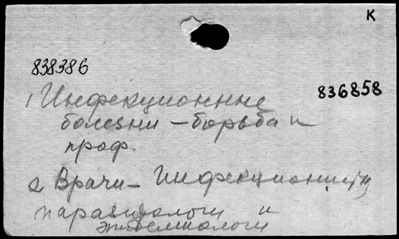 К
838386
836858
1 Инфекционные
болезни – борьба и
проф.
2 Врачи – Инфекционисты
паразитологи и
эпидемиологи